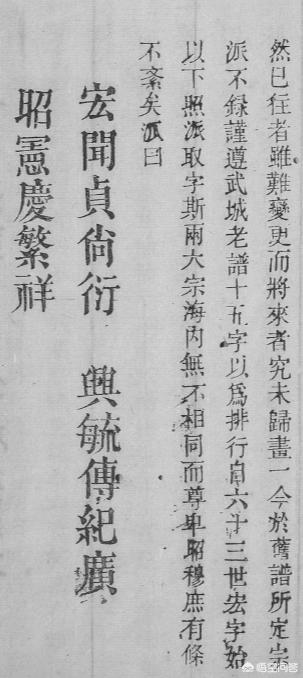 然已往者雖難變更而將來者究未歸畫一今於舊譜所定宗
派不録謹遵武城老譜十五字以為排行自六十三世宏字始
以下照派取字斯兩大宗海内無不相同而尊卑昭穆庶有條
不紊矣派曰
宏聞貞尚衍 興毓傳紀廣
昭憲慶繁祥
悟空问答